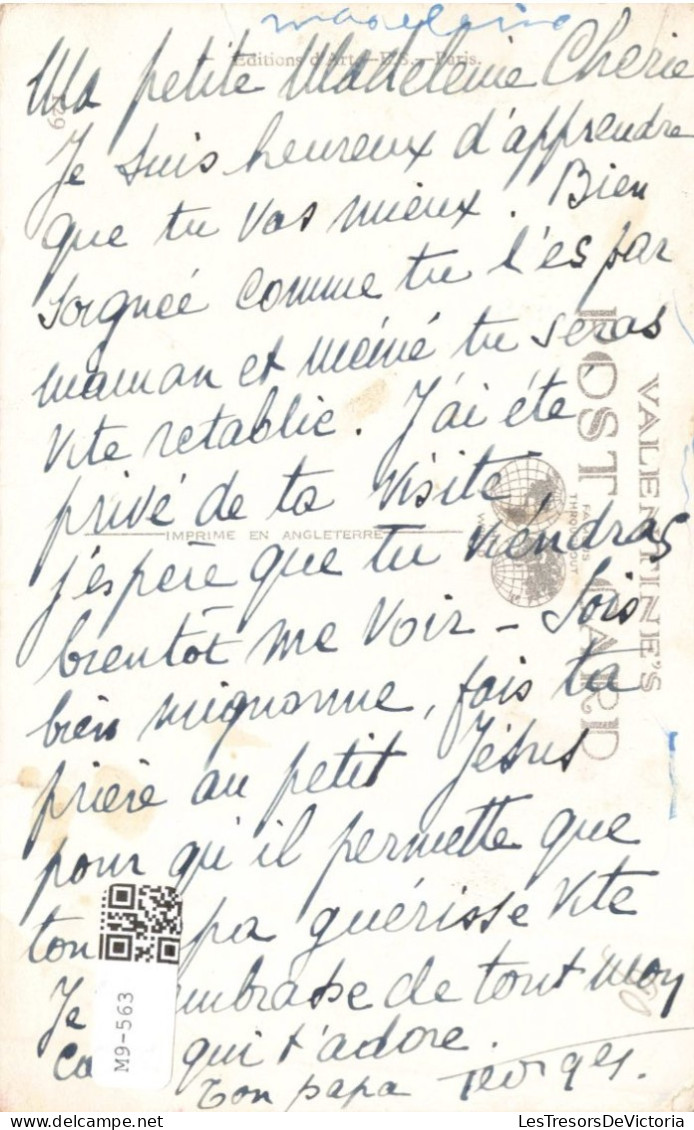 madeleine
Editions d'Art.—E.S.—Paris.
129
Ma petite Madeleine Cherie
Je suis heureux d'apprendre
que tu vas mieux. Bien
soignée comme tu l'es par
maman et mémé tu seras
vite retablie. J'ai été
privé de ta visite,
j'espère que tu viendras
bientôt me voir – Sois
bien mignonne, fais ta
prière au petit Jésus
pour qu'il permette que
ton pa guérisse vite
Je embrasse de tout mon
qui t'adore.
Ton papa Georges.
IMPRIME EN ANGLETERRE
VALENTINE'S
POST CARD
FAMOUS
THROUGHOUT
M9-563
LesTresorsDeVictoria